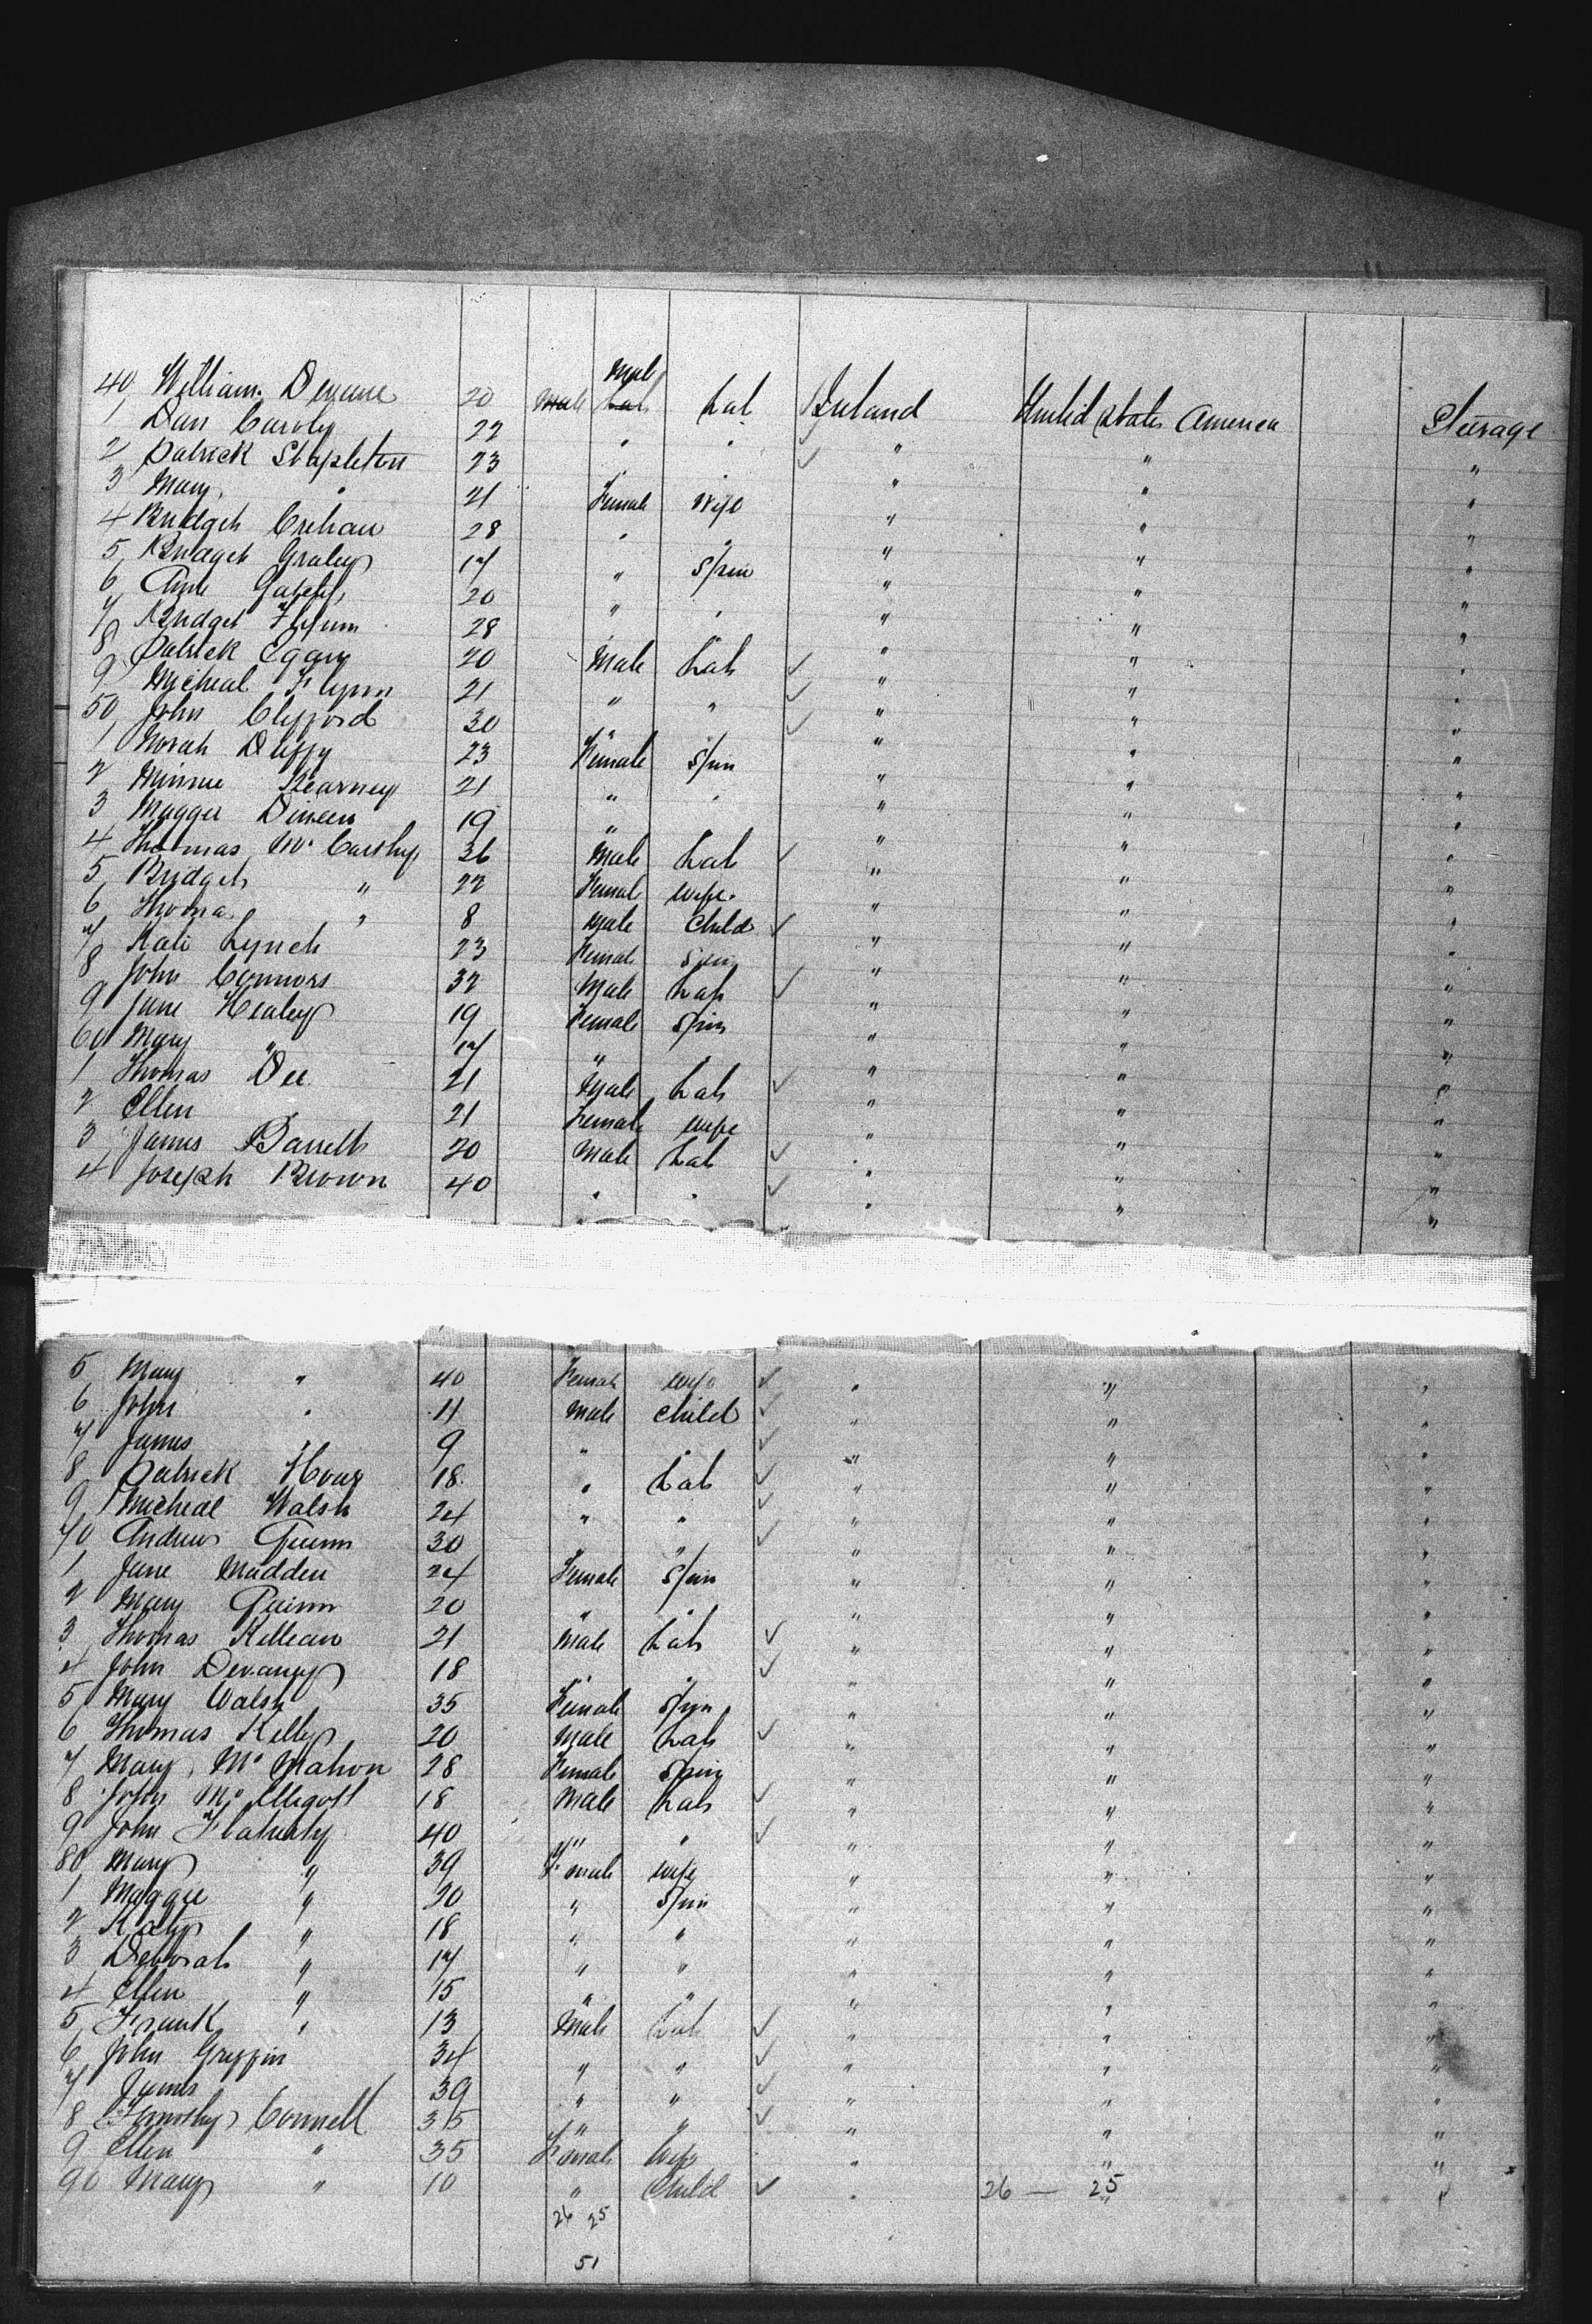 40 William Devane 20 Male Lab Male Lab Ireland United States America Steerage
1 Dan Caroly 22 " " " " "
2 Patrick Stapleton 23 " " " "
3 Mary " 21 Female Wife " " "
4 Bridget Crehan 28 " " " " "
5 Bridget Graley 17 " Spin " " "
6 Ann 20 " " " " "
7 Bridget Flynn 28 " " "
8 Patrick Egan 20 Male Lab " " "
9 Micheal Flynn 21 " " " " "
50 John Clifford 30 " " " " "
1 Norah Duffy 23 Female Spin " " "
2 Minnie Kearney 21 " " " " "
3 Maggie Dineen 19 " " " "
4 Thomas Mc Carthy 36 Male Lab " " "
5 Bridget " 22 Female wife " " "
6 Thomas " 8 Male Child " " "
7 Kate Lynch 23 Female Spin " " "
8 John Connors 32 Male Lab " " "
9 Jane Healey 19 Female Spin " " "
60 Mary " 17 " " " " "
1 Thomas Dee 21 Male Lab " " "
2 Ellen " 21 Female wife " " "
3 James Barrett 20 Male Lab " " "
4 Joseph Brown 40 " " " " "
5 Mary " 40 Female wife " " "
6 John " 11 Male Child " " "
7 James " 9 " " " " "
8 Patrick Hour 18 " Lab " " "
9 Micheal Walsh 24 " " " " "
70 Andrew Quinn 30 " " " "
1 Jane Madden 24 Female Spin " " "
2 Mary Quinn 20 " " " " "
3 Thomas Killean 21 Male Lab " " "
4 John Devaney 18 " " " " "
5 Mary Walsh 35 Female Spin " " "
6 Thomas Kelly 20 Male Lab " " "
7 Mary Mc Mahon 28 Female Spin " " "
8 John Mc Elligott 18 Male Lab " " "
9 John Flaherty 40 " " " " "
80 Mary " 39 Female wife " " "
1 Maggie " 20 " Spin " " "
2 Katy " 18 " " " " "
3 Deborah " 17 " " " " "
4 Ellen " 15 " " " " "
5 Frank " 13 Male Lab " " "
6 John Griffin 34 " " " " "
7 James 39 " " " " "
8 Timothy Connell 35 " " " " "
9 Ellen " 35 Female Wife " " "
90 Mary " 10 " Child " 26 — 25 " "
26 25
51